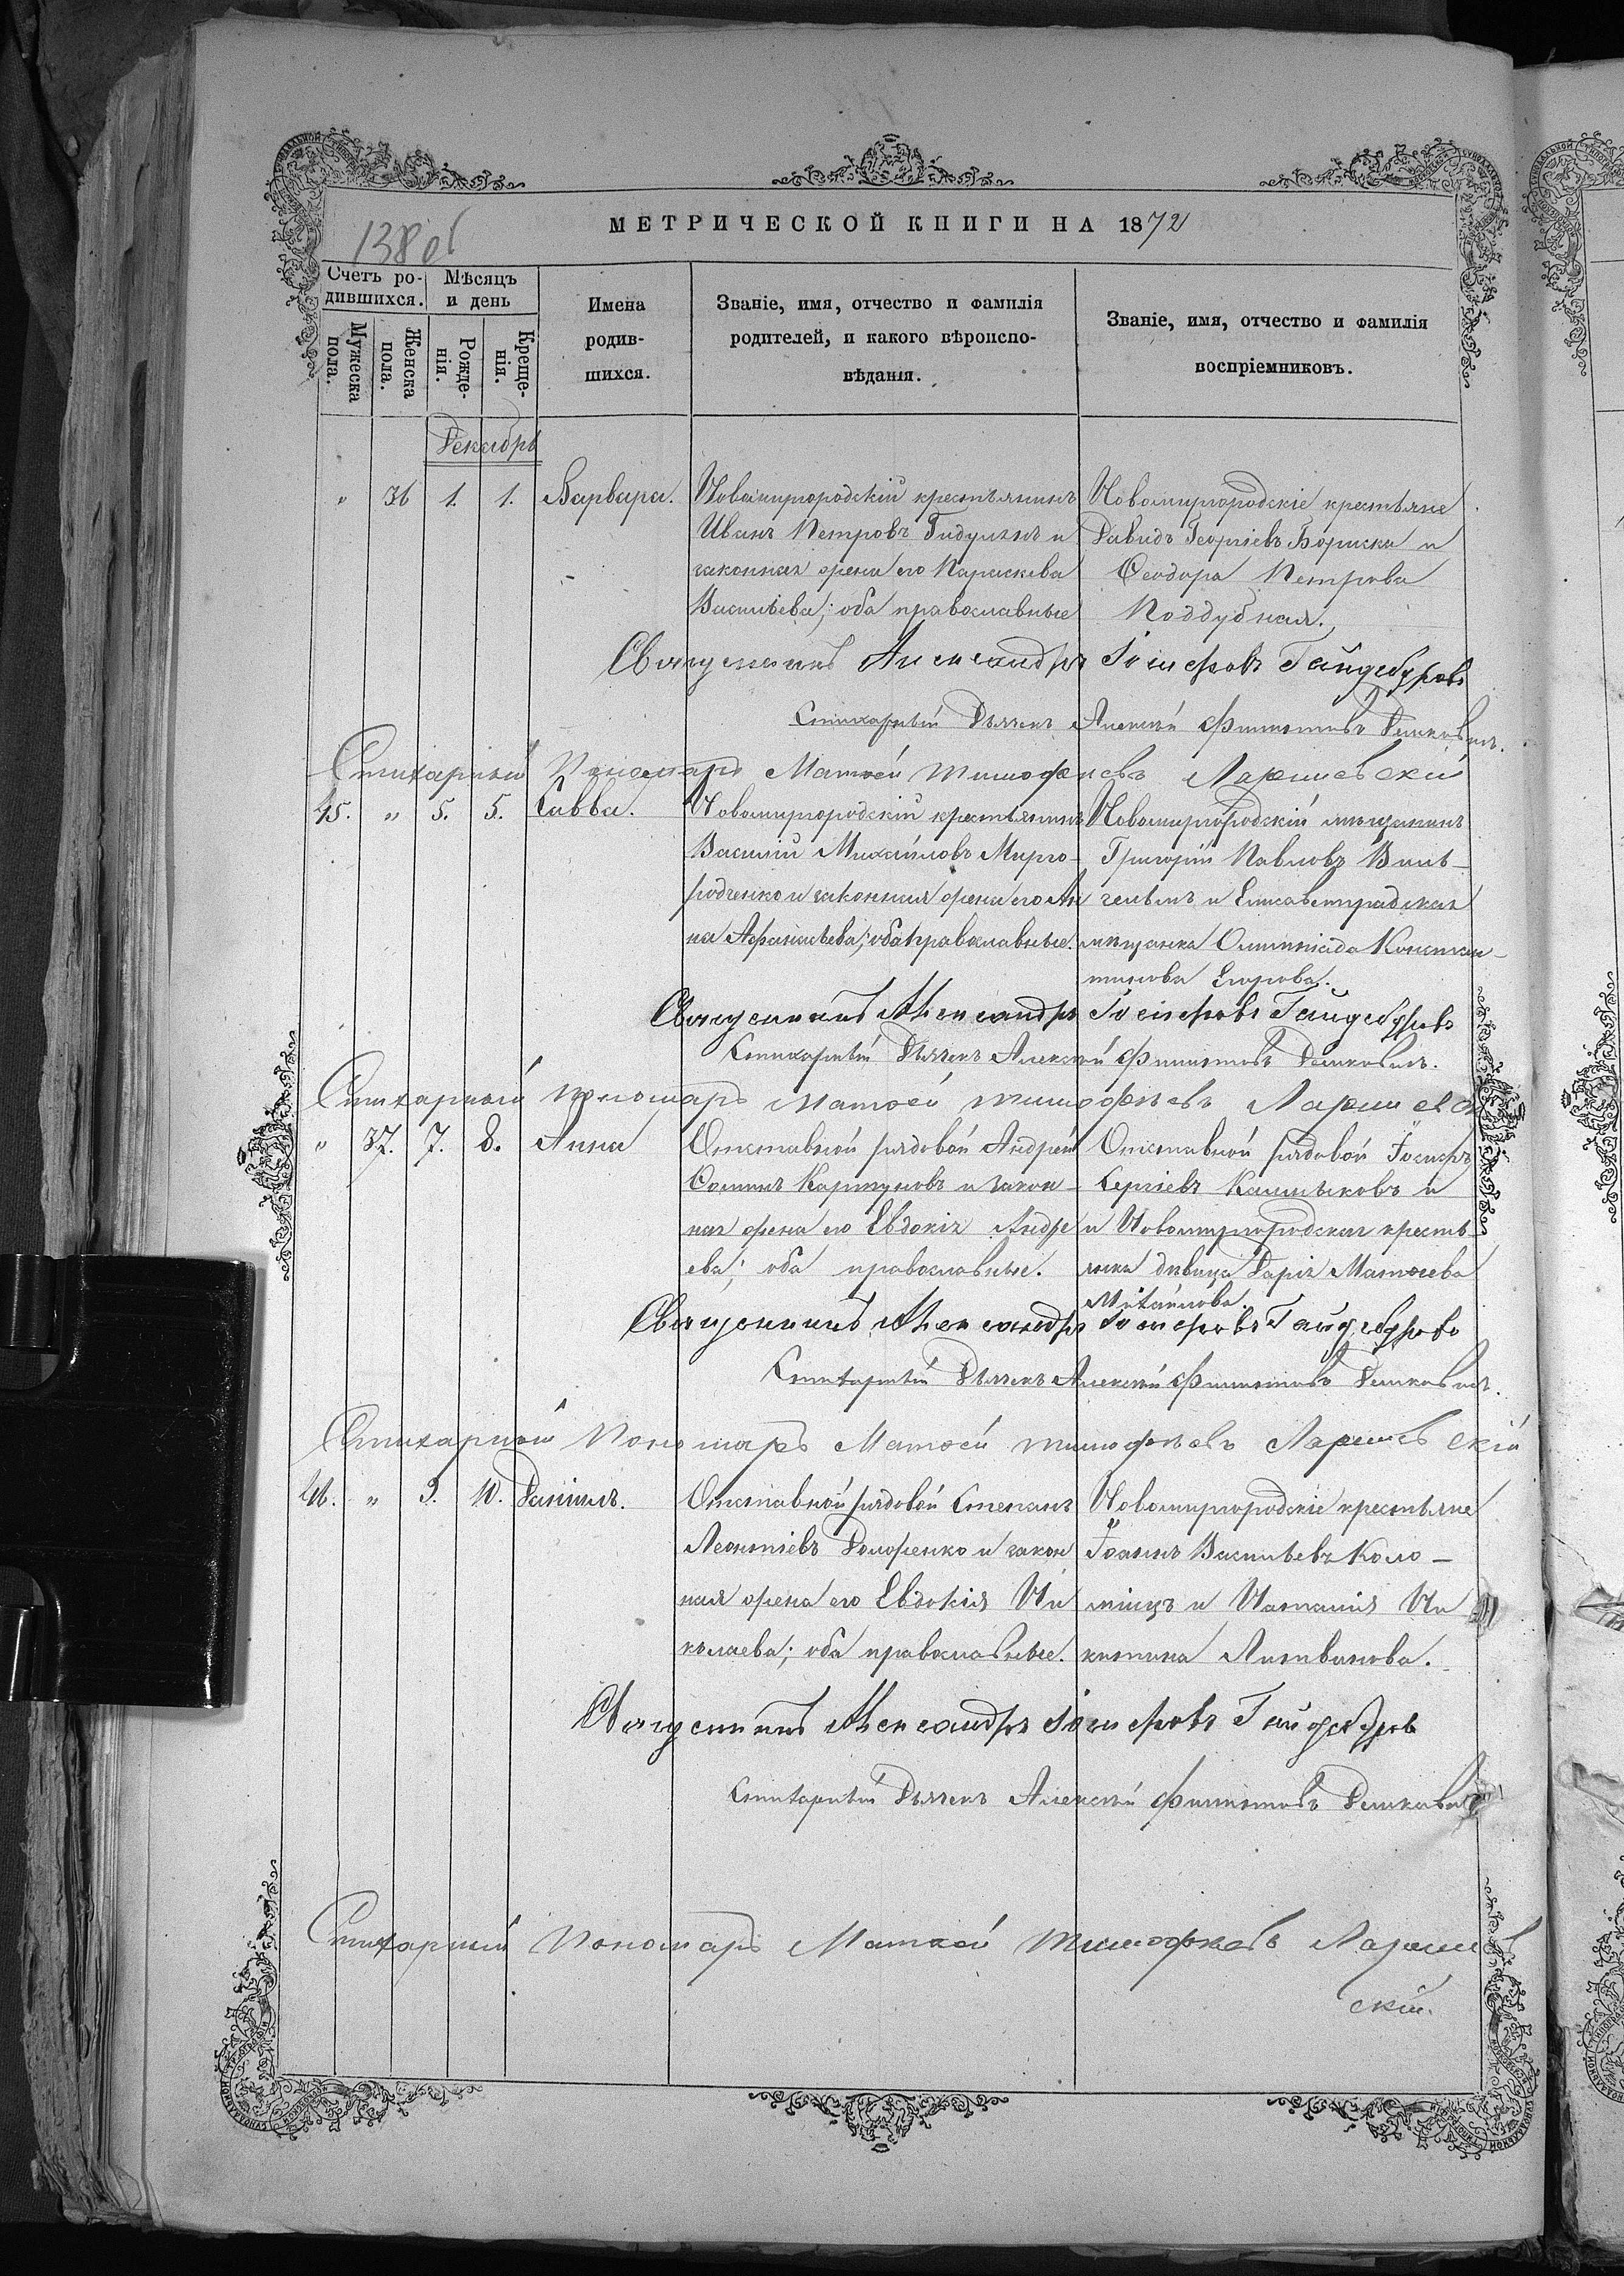 МЕТРИЧЕСКОЙ КНИГИ НА 1872
138 об
Счетъ ро-
дившихся.
Мѣсяцъ
и день
Мужеска
пола.
Женска
пола.
Рожде-
нія.
Креще-
нія.
Имена
родив-
шихся.
Званіе, имя, отчество и фамилія
родителей, и какого вѣроиспо-
вѣданія.
Званіе, имя, отчество и фамилія
воспріемниковъ.
Декабрь
" 36 1. 1. Варвара.
Новомиргородскій крестьянинъ
Иванъ Петровъ и
законная жена его Параскева
Васильева; оба православные
Новомиргородскіе крестьяне
Давидъ Георгіевъ Бориска и
Ѳеодора Петрова
Поддубная.
Священникъ Александръ Іосифовъ Гайдебуровъ
Стихарный Дьячекъ Алексѣй Филиповъ
Стихарный Пономарь Матѳей Тимофеевъ
45. " 5. 5. Савва.
Новомиргородскій крестьянинъ
Василій Михайловъ Мирго-
родченко и законная жена его Ан
на Афанасьева; оба православные.
Новомиргородскій мѣщанинъ
Григорій Павловъ
и Елисаветградская
мѣщанка Олимпіада Констан-
тинова Егорова.
Священникъ Александръ Іосифовъ Гайдебуровъ
Стихарный Дьячекъ Алексѣй Филиповъ
Стихарный пономарь Матѳей Тимофѣевъ
" 37. 7. 8. Анна
Отставной рядовой Андрей
Ѳоминъ Картуновъ и закон-
ная жена его Евдокія Андре
ева; оба православные.
Отставной рядовой Іосифъ
Сергіевъ Калмыковъ и
и Новомиргородская кресть-
янка дѣвица Дарія Матѳеева
Михайлова.
Священникъ Александръ Іосифовъ Гайдебуровъ
Стихарный Дьячекъ Алексѣй Филиповъ
Стихарный Пономарь Матѳей Тимофѣевъ
46. " 9. 10. Даніилъ.
Отставной рядовой Степанъ
Леонтіевъ Доложенко и закон
ная жена его Евдокія Ни
колаева; оба православные.
Новомиргородскіе крестьяне
Іоаннъ Васильевъ Коло-
міецъ и Наталія Ни
китина Литвинова.
Священникъ Александръ Іосифовъ Гайдебуровъ
Стихарный Дьячекъ Алексѣй Филиповъ
Стихарный Пономарь Матѳей Тимофѣевъ
скій.